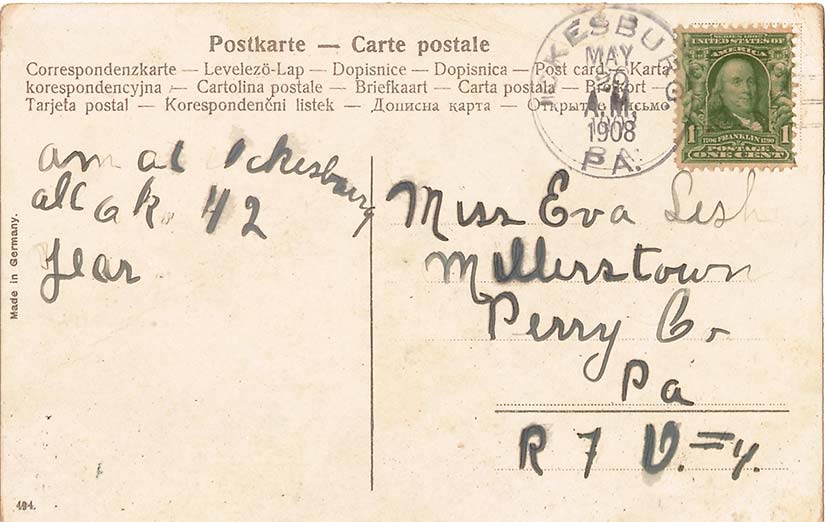 Postkarte — Carte postale
Correspondenzkarte — Levelező-Lap — Dopisnice — Dopisnica — Post card — Karta
korespondencyjna — Cartolina postale — Briefkaart — Carta postala — Brefkort —
Tarjeta postal — Korespondenční listek — Дописна карта — Открытое письмо
ICKESBURG
MAY
A.M.
1908
PA.
SERIES 1902
UNITED STATES OF
AMERICA
1 1
1706 FRANKLIN 1790
POSTAGE
ONE CENT
am at Ickesburg
all ok. 42
year
Miss Eva Lesh
Millerstown
Perry Co
Pa
R 7
Made in Germany.
494.